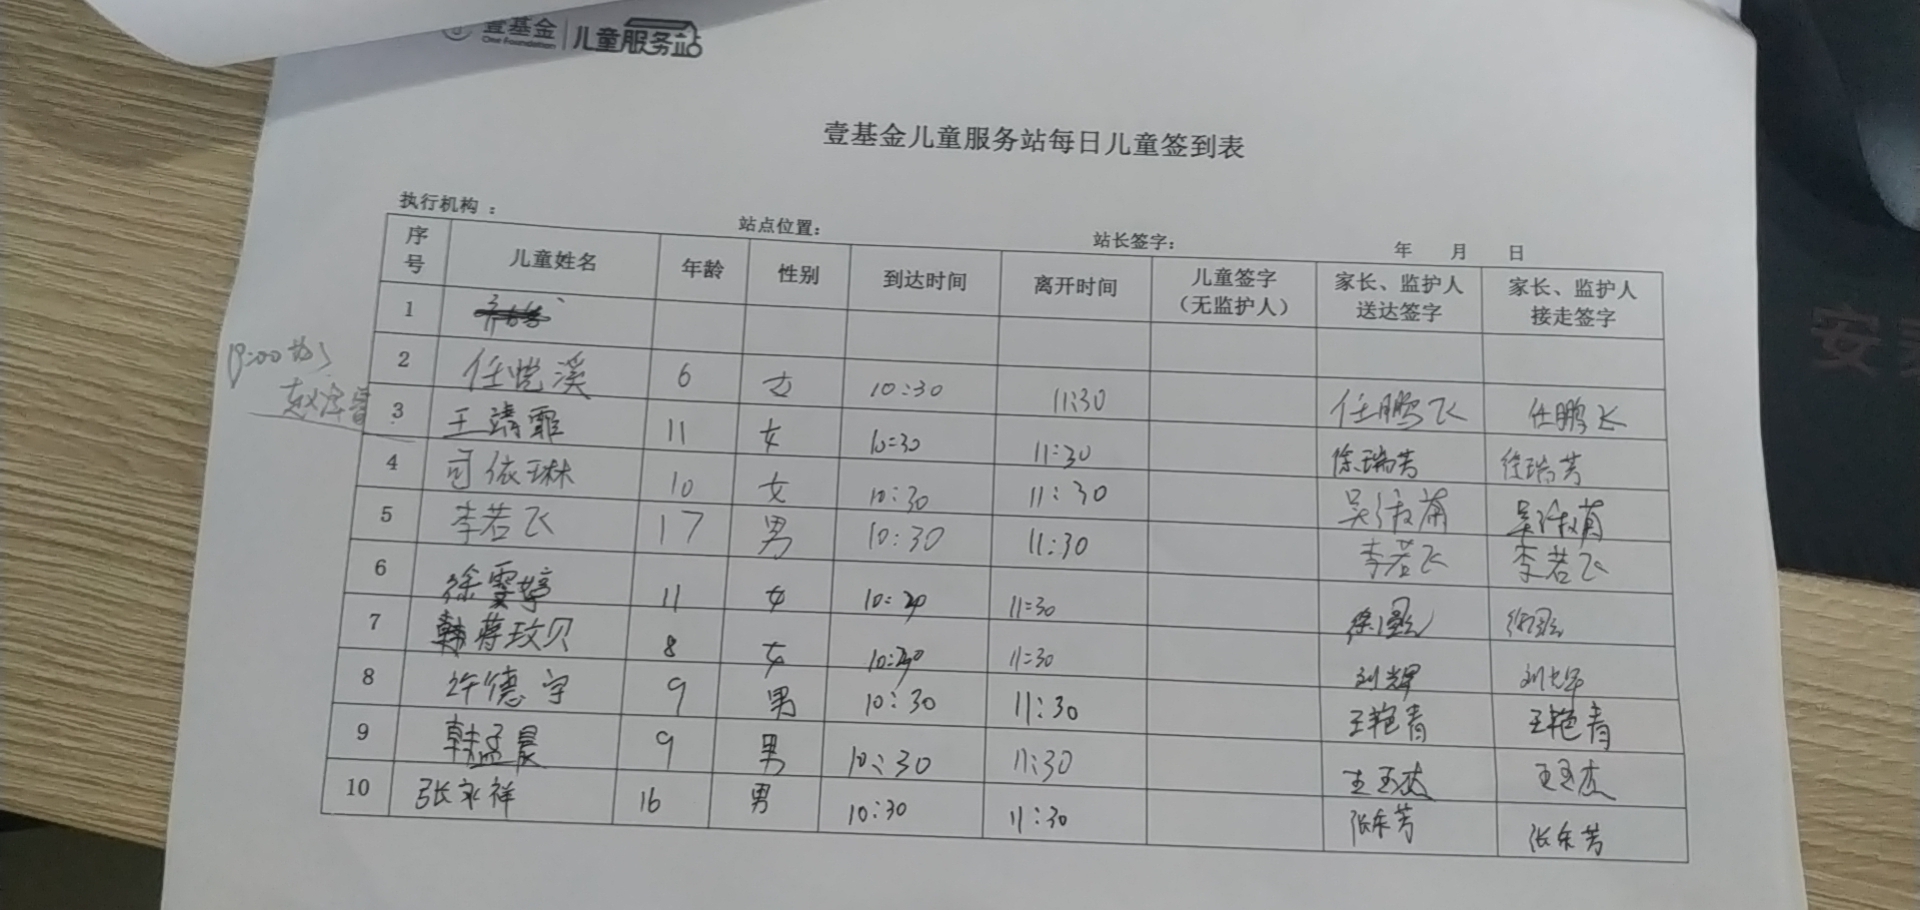 壹基金 儿童服务站
One Foundation
壹基金儿童服务站每日儿童签到表
执行机构： 站点位置： 站长签字： 年 月 日
序号 儿童姓名 年龄 性别 到达时间 离开时间 儿童签字（无监护人） 家长、监护人送达签字 家长、监护人接走签字
1
2 任悦溪 6 女 10:30 11:30 任鹏飞 任鹏飞
3 王靖霏 11 女 10:30 11:30 徐瑞芳 徐瑞芳
4 司依琳 10 女 10:30 11:30
5 李若飞 17 男 10:30 11:30 李若飞 李若飞
6 徐雯婷 11 女 11:30
7 蒋玟贝 8 女 11:30 刘辉 刘辉
8 许德宇 9 男 10:30 11:30 王艳青 王艳青
9 韩孟晨 9 男 10:30 11:30 王玉杰 王玉杰
10 张家祥 16 男 10:30 11:30 张东芳 张东芳